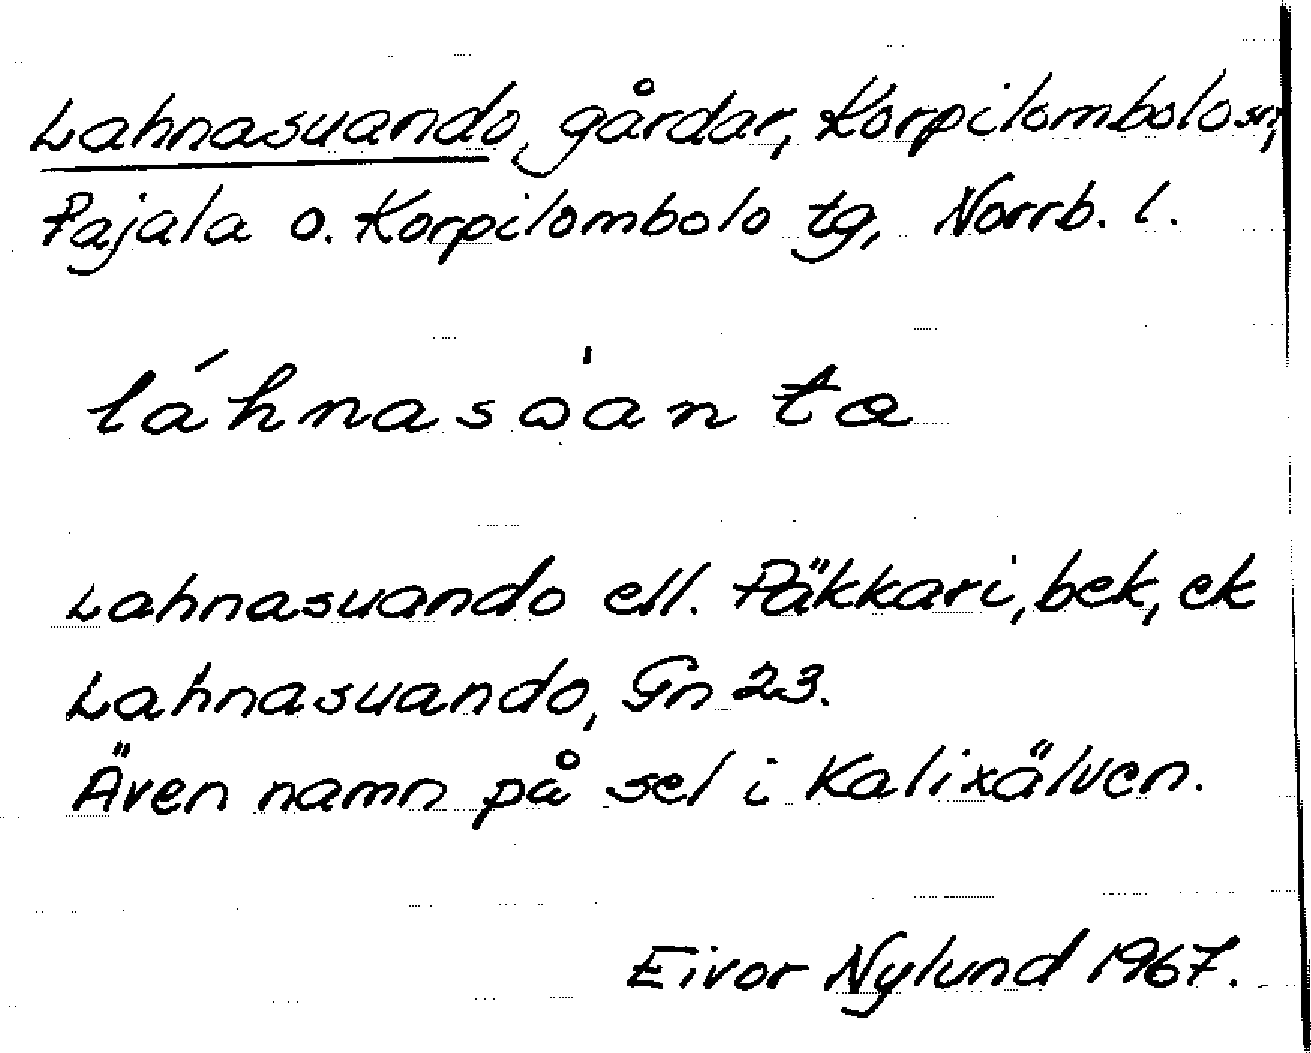 Lahnasuando, gårdar, Korpilombolo sn,
Pajala o. Korpilombolo tg, Norrb. l.
láhnasὼanta
Lahnasuando ell. Päkkari, bek, ek
Lahnasuando, Gn 23.
Även namn på sel i Kalixälven.
Eivor Nylund 1967.